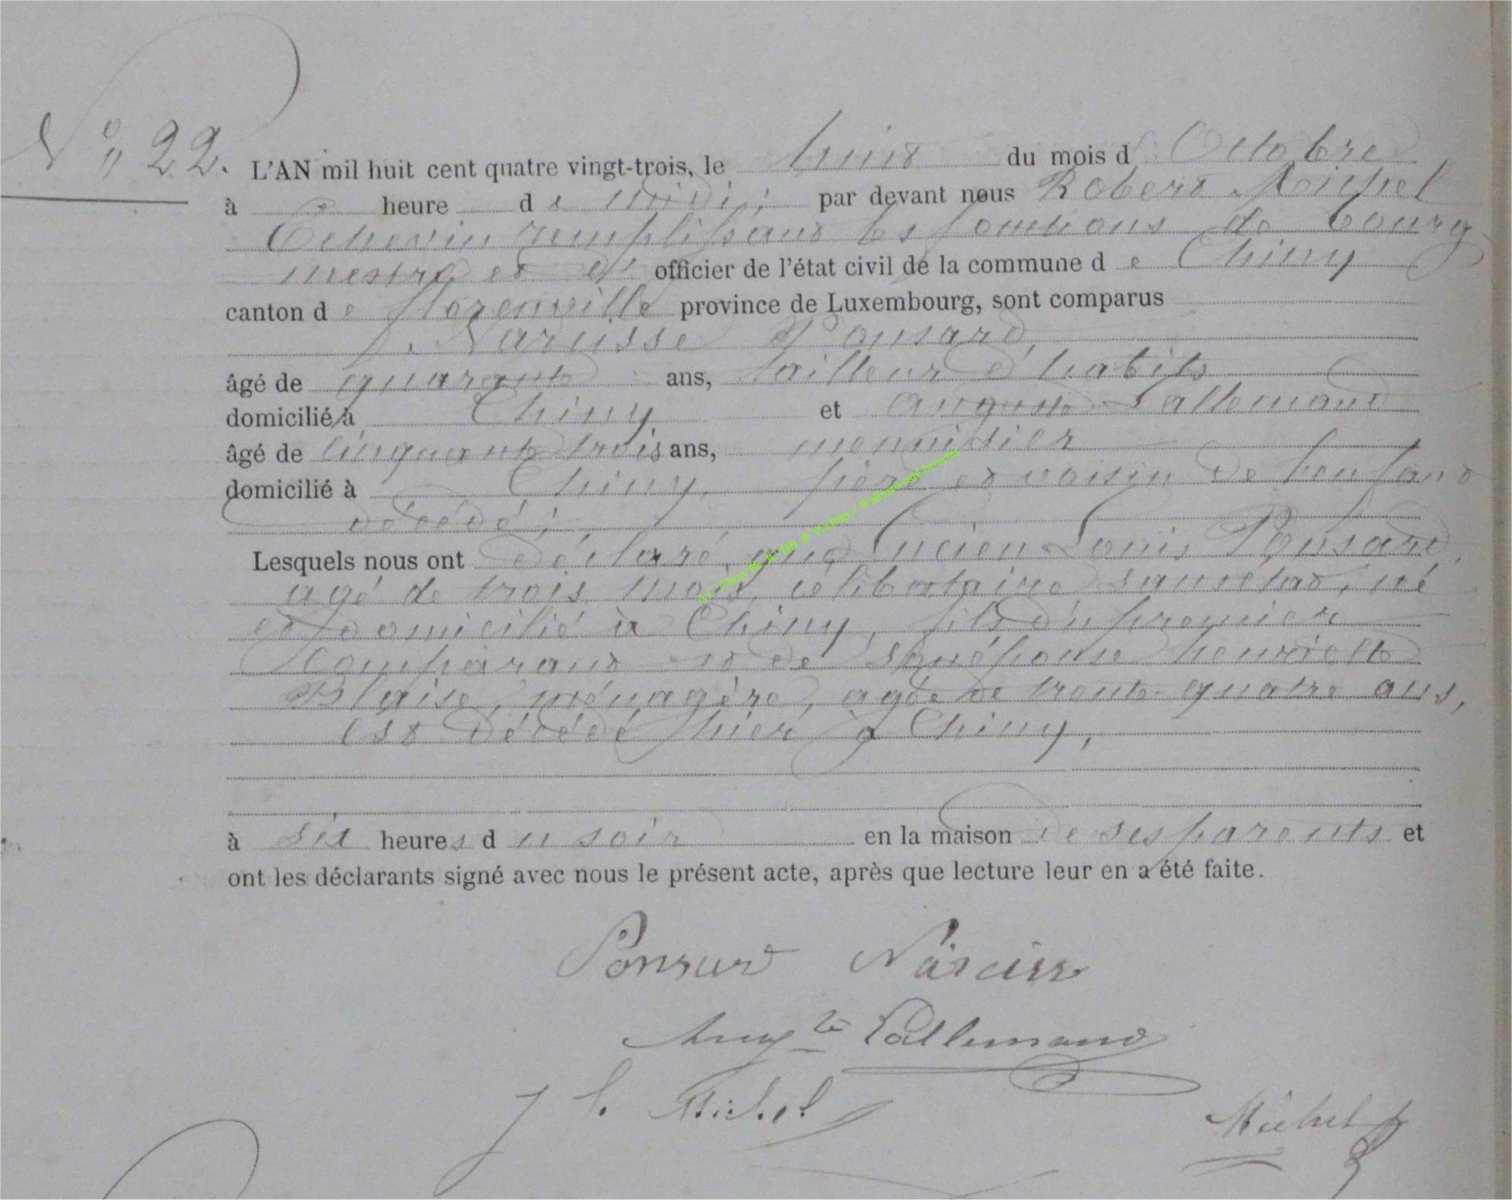 N° 22. L'AN mil huit cent quatre vingt-trois, le huit du mois d'Octobre
à heure de midi, par devant nous Robert Michel
Echevin remplissant les fonctions de bourg
mestre et d' officier de l'état civil de la commune de Chiny
canton de florenville province de Luxembourg, sont comparus
Narcisse Ponsard,
âgé de quarante ans, tailleur d'habits
domicilié à Chiny et Auguste Lallemand
âgé de cinquante trois ans, menuisier
domicilié à Chiny, père et voisin de l'enfant
décédé;
Lesquels nous ont déclaré que Lucien Louis Ponsard,
agé de trois mois, célibataire sans état, né
et domicilié à Chiny, fils du premier
Comparant et de son épouse henriette
Blaise, ménagère, agée de trente-quatre ans,
est décédé hier à Chiny,
à six heures du soir en la maison de ses parents et
ont les déclarants signé avec nous le présent acte, après que lecture leur en a été faite.
Ponsard Narcisse
Aug.te Lallemand
J L. Michel
Michel